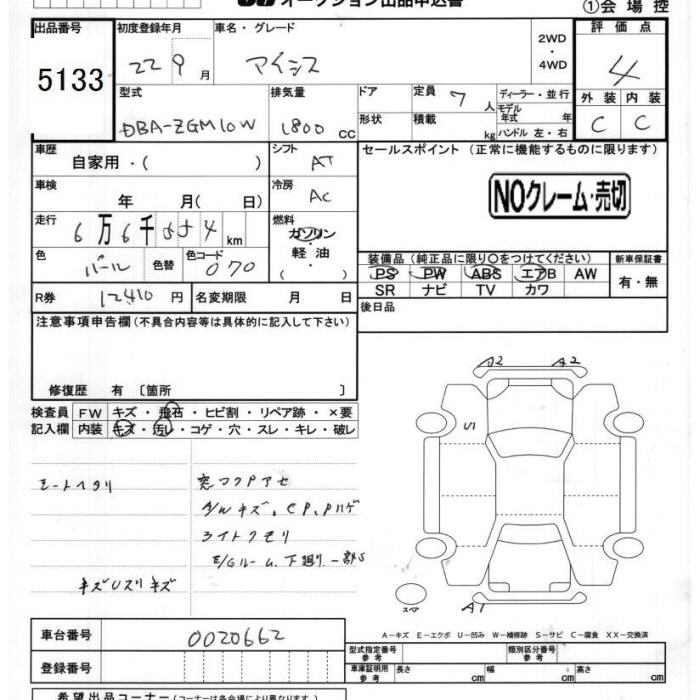 オークション出品申込書
①会 場 控
出品番号 初度登録年月 車名・グレード 2WD・4WD 評価点
5133 22 9月 アイシス 4
型式 排気量 ドア 定員 7人 ディーラー・並行 外装 内装
DBA-ZGM10W 1800cc 形状 積載 kg モデル年式 年 ハンドル 左・右 C C
車歴 自家用・( ) シフト AT セールスポイント (正常に機能するものに限ります)
車検 年 月( 日) 冷房 AC NOクレーム・売切
走行 6万6千554km 燃料 ガソリン 軽油 ・( )
色 パール 色替 色コード 070 装備品 (純正品に限り○をつけてください) 新車保証書
PS PW ABS エアB AW 有・無
SR ナビ TV カワ
R券 12410円 名変期限 月 日 後日品
注意事項申告欄 (不具合内容等は具体的に記入して下さい)
修復歴 有 〔箇所 〕
検査員 FW キズ・飛石・ヒビ割・リペア跡・×要
記入欄 内装 キズ・汚レ・コゲ・穴・スレ・キレ・破レ
A2 A2
U1
シートヘタリ 窓ワクPアセ
A/Wキズ、CP、Pハゲ
ライトクモリ
E/Gルーム、下廻り一部S
キズUスリキズ
スペア A1
A-キズ E-エクボ U-凹み W-補修跡 S-サビ C-腐食 XX-交換済
車台番号 0020662 型式指定番号 参考 類別区分番号 参考
登録番号 車庫証明用 参考 長さ cm 幅 cm 高さ cm
希望出品コーナー (コーナーは各会場により異なります)